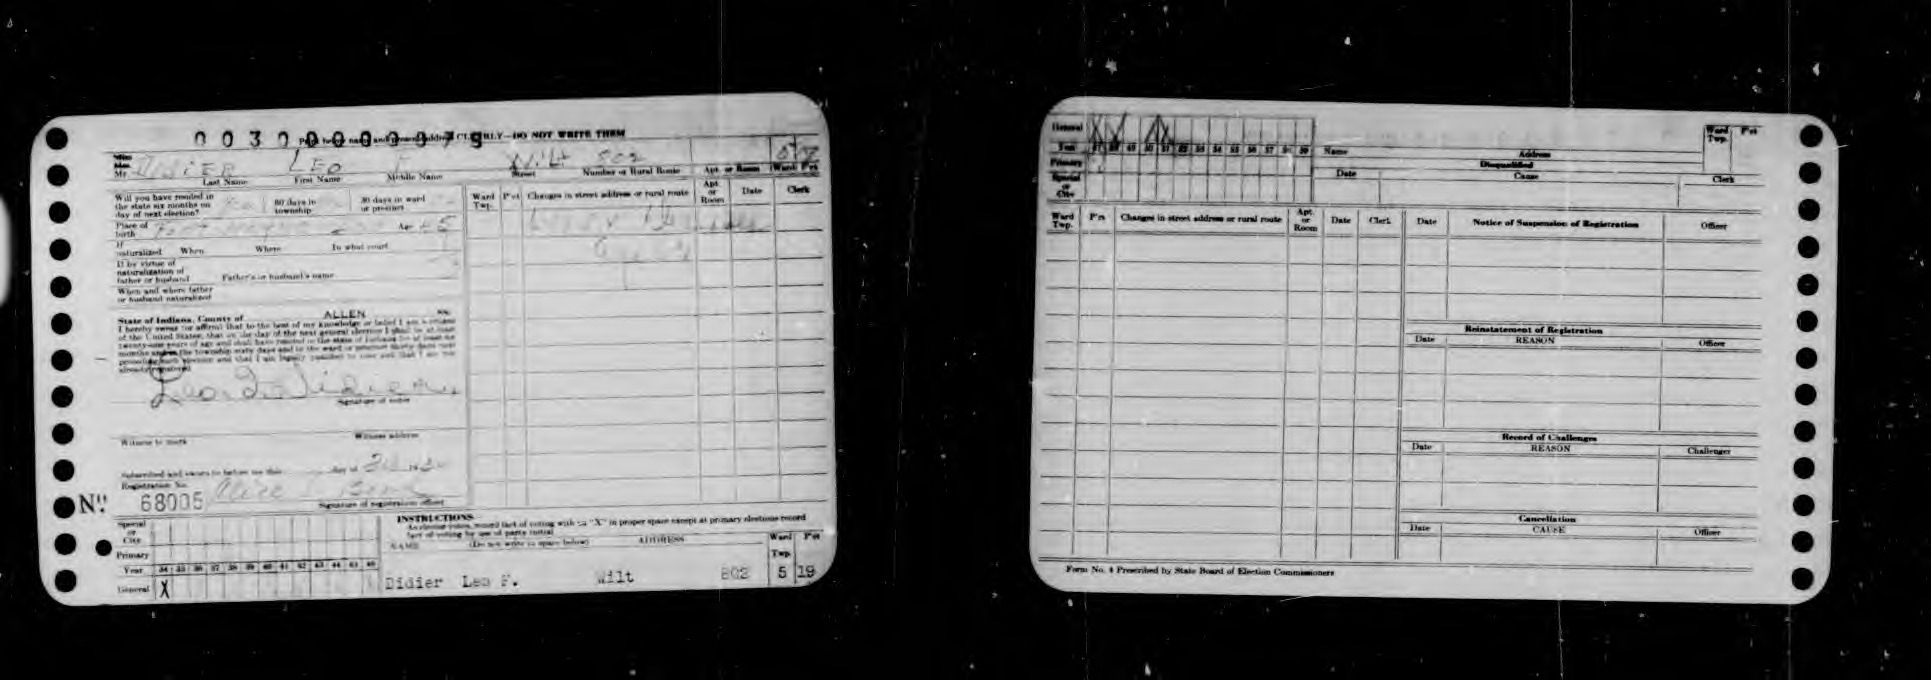 0030000079
Print below name and present address CLEARLY—DO NOT WRITE THEM
Miss
Mrs.
Mr. DIDIER LEO F Wilt 802
Last Name First Name Middle Name Street Number or Rural Route Apt. or Room Ward P'ct
Will you have resided in
the state six months on
day of next election?
60 days in
township
30 days in ward
or precinct
Place of
birth Fort Wayne Age
If
naturalized When Where In what court
If by virtue of
naturalization of
father or husband Father's or husband's name
When and where father
or husband naturalized
State of Indiana, County of ALLEN ss:
I hereby swear (or affirm) that to the best of my knowledge or belief I am a citizen
of the United States; that on the day of the next general election I shall be at least
twenty-one years of age and shall have resided in the state of Indiana for at least six
months and in the township sixty days and in the ward or precinct thirty days next
preceding such election and that I am legally qualified to vote and that I am not
already registered.
Leo F. Didier
Signature of voter
Witness to mark Witness address
Subscribed and sworn to before me this day of
Registration No.
No. 68005 Alice
Signature of registration officer
Ward
Twp. P'ct Changes in street address or rural route Apt.
or
Room Date Clerk
Special
or
City
Primary
Year 34 35 36 37 38 39 40 41 42 43 44 45 46
General X
INSTRUCTIONS
As elector votes, record fact of voting with an "X" in proper space except at primary elections record
fact of voting by use of party initial
NAME (Do not write in space below) ADDRESS Ward
Twp. P'ct
Didier Leo F. Wilt 802 5 19
General X X
Year 47 48 49 50 51 52 53 54 55 56 57 58 59
Primary
Special
or
City
Name Address Ward
Twp. P'ct
Disqualified
Date Cause Clerk
Ward
Twp. P'ct Changes in street address or rural route Apt.
or
Room Date Clerk
Date Notice of Suspension of Registration Officer
Reinstatement of Registration
Date REASON Officer
Record of Challenges
Date REASON Challenger
Cancellation
Date CAUSE Officer
Form No. 4 Prescribed by State Board of Election Commissioners